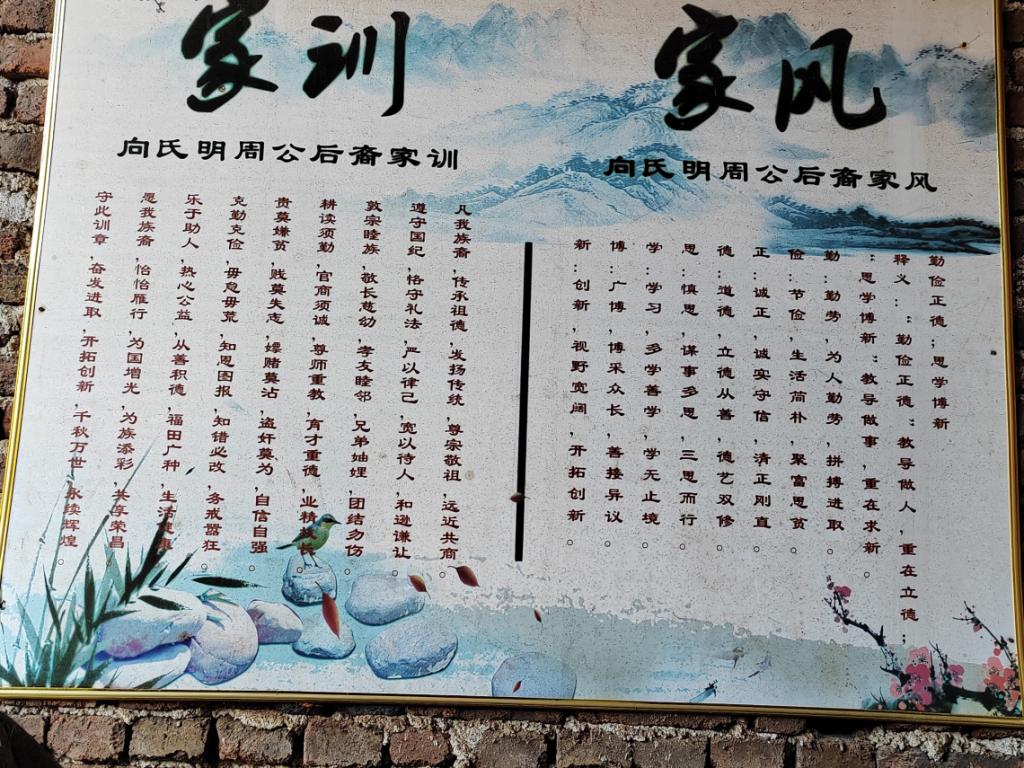 家训
向氏明周公后裔家训
凡我族裔,传承祖德,发扬传统,尊宗敬祖,远近共商。
遵守国纪,恪守礼法,严以律己,宽以待人,和逊谦让。
敦宗睦族,敬长慈幼,孝友睦邻,兄弟妯娌,团结勿伤。
耕读须勤,官商须诚,尊师重教,育才重德,业精长。
贵莫嫌贫,贱莫失志,嫖赌莫沾,盗奸莫为,自信自强。
克勤克俭,毋怠毋荒,知恩图报,知错必改,务戒嚣狂。
乐于助人,热心公益,从善积德,福田广种,生活健康。
愿我族裔,怡怡雁行,为国增光,为族添彩,共享荣昌。
守此训章,奋发进取,开拓创新,千秋万世,永续辉煌。
家风
向氏明周公后裔家风
勤俭正德;思学博新
释义:"勤俭正德"教导做人,重在立德;
"思学博新"教导做事,重在求新。
勤:勤劳,为人勤劳,拼搏进取。
俭:节俭,生活简朴,聚富思贫。
正:诚正,诚实守信,清正刚直。
德:道德,立德从善,德艺双修。
思:慎思,谋事多思,三思而行。
学:学习,多学善学,学无止境。
博:广博,博采众长,善接异议。
新:创新,视野宽阔,开拓创新。